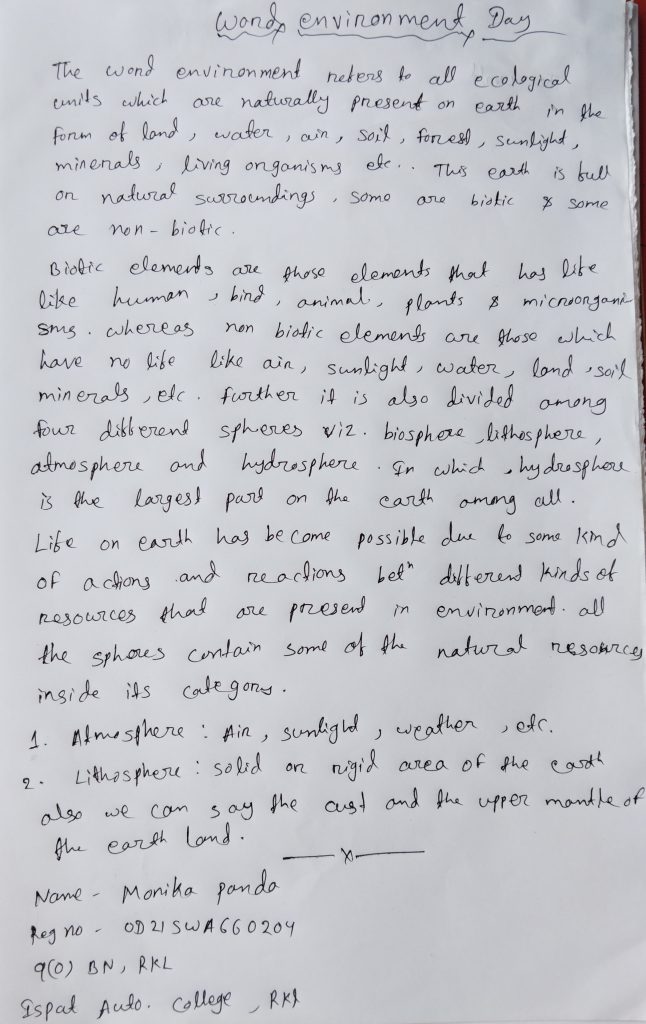 Word environment Day
The word environment refers to all ecological
units which are naturally present on earth in the
form of land, water, air, soil, forest, sunlight,
minerals, living organisms etc.. This earth is full
on natural surroundings, some are biotic & some
are non-biotic.
Biotic elements are those elements that has life
like human, bird, animal, plants & microorgani
sms. whereas non biotic elements are those which
have no life like air, sunlight, water, land, soil
minerals, etc. further it is also divided among
four different spheres viz. biosphere, lithosphere,
atmosphere and hydrosphere. In which, hydrosphere
is the largest part on the earth among all.
Life on earth has become possible due to some kind
of actions and reactions betn different kinds of
resources that are present in environment. all
the sphores contain some of the natural resources
inside its category.
1. Atmosphere : Air, sunlight, weather, etc.
2. Lithosphere : solid or rigid area of the earth
also we can say the cust and the upper mantle of
the earth land.
x
Name - Monika panda
Reg no - OD21SWA660204
9(O) BN, RKL
Ispat Auto. College, RKL